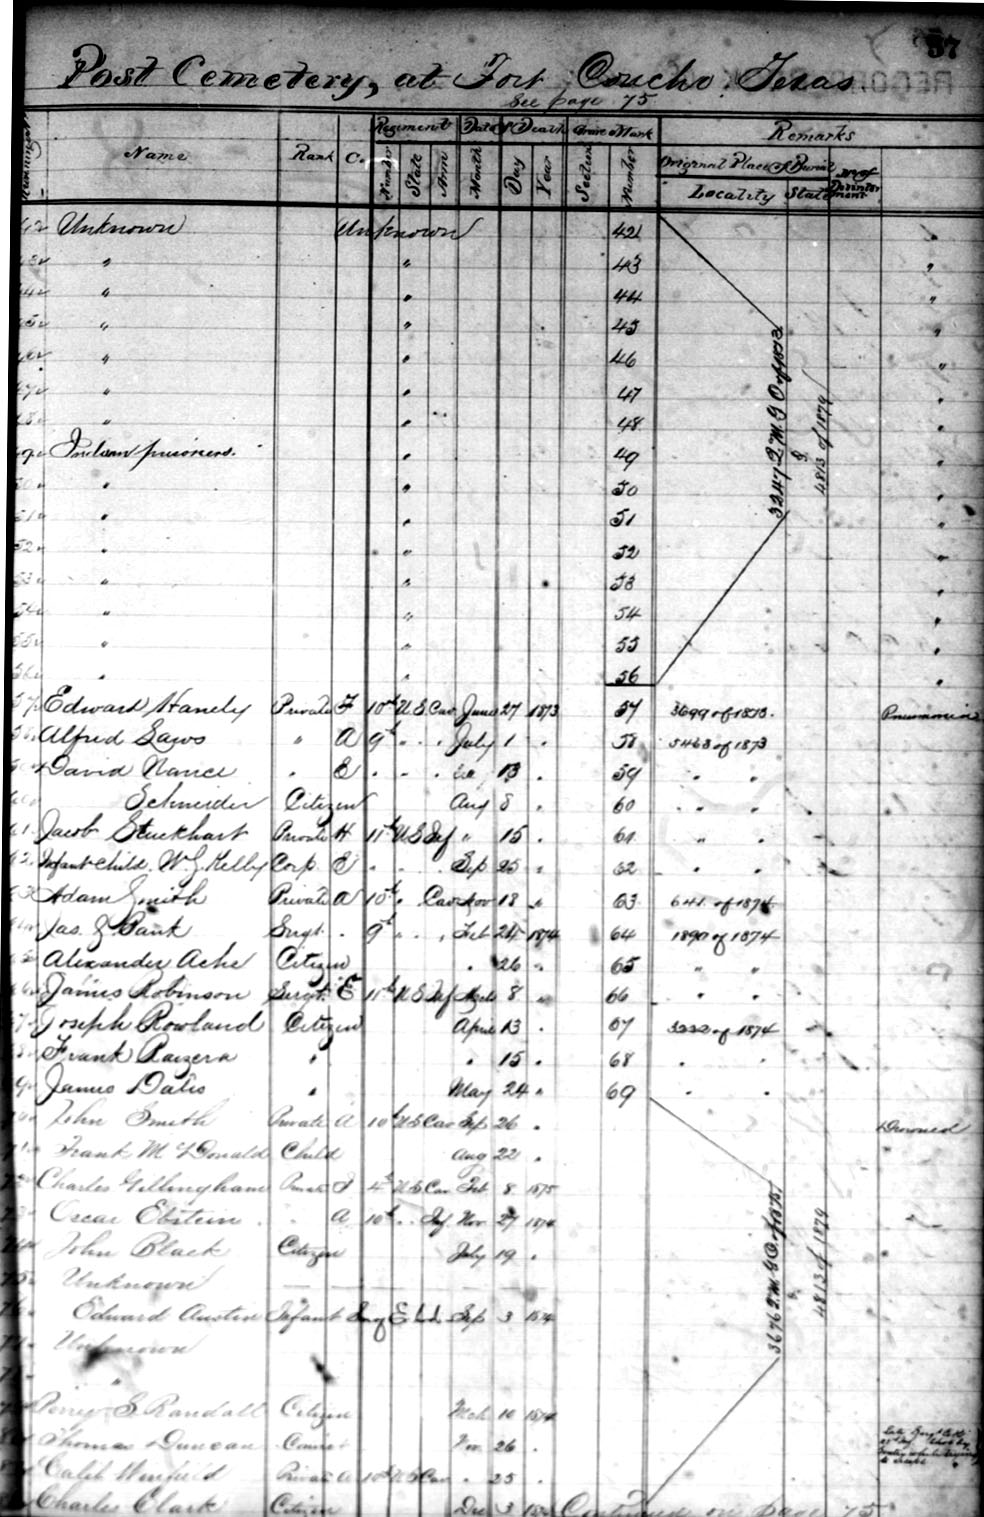 37
Post Cemetery, at Fort Concho, Texas.
See page 75
Name Rank Co. Regiment Date of Death Grave Mark Remarks
Number State Arm Month Day Year Section Number Original Place of Burial No of Disinterment
Locality State
42 Unknown Unknown 42 "
43 " " 43 "
44 " " 44 "
45 " " 45 "
46 " " 46 "
47 " " 47 "
48 " " 48 "
49 Indian prisoners. " 49 "
50 " " 50 "
51 " " 51 "
52 " " 52 "
53 " " 53 "
54 " " 54 "
55 " " 55 "
56 " " 56 "
3247 Q.M.G.O. of 1873
&
4813 of 1879
57 Edward Handy Private F 10th U S Cav June 27 1873 57 3699 of 1873. Pneumonia
58 Alfred Laws " A 9th " " July 1 " 58 5463 of 1873
59 David Nance " E " " " do 13 " 59 " "
60 Schneider Citizen Aug 8 " 60 " "
61 Jacob Stuckhart Private H 11th U S Inf " 15 " 61 " "
62 Infant child. W. J. Kelly Corp. E " " " Sep 25 " 62 " "
63 Adam Smith Private A 10th " Cav Nov 18 " 63 641 of 1874
64 Jas. J. Bank Sergt. " 9th " " Feb 24 1874 64 1890 of 1874
65 Alexander Ache Citizen " 26 " 65 " "
66 James Robinson Sergt. E 11th U S Inf Mch 8 " 66 " "
67 Joseph Rowland Citizen April 13 " 67 3222 of 1874
68 Frank Raizera " " 15 " 68 " "
69 James Dalis " May 24 " 69 " "
70 John Smith Private A 10th U S Cav Sep 26 " Drowned
71 Frank McDonald Child Aug 22 "
72 Charles Gillingham Private I 4th U S Cav Feb 8 1875
73 Oscar Ebstein " A 10th " Inf Nov 27 1874 "
74 John Black Citizen July 19 "
75 Unknown
76 Edward Austin Infant Sep 3 1874
77 Unknown
78 "
3676 Q.M.G.O. of 1875.
&
4813 of 1879
79 S. Randall Citizen Mch 10 1874
80 Thomas Duncan Nov 26 "
81 Caleb Winfield Private A 10th U S Cav " 25 "
82 Charles Clark Citizen Dec 3 Continued on page 75